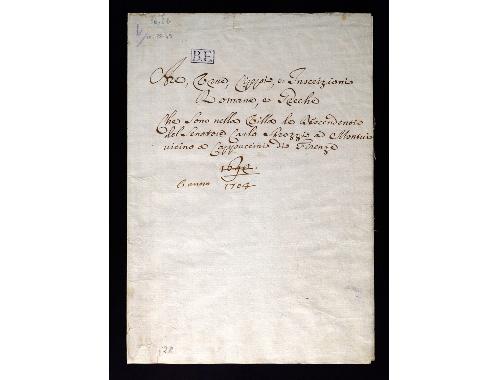 B.F.
Are, Urne, Cippi, e Inscrizioni
Romane, e Greche
Che sono nella Villa de Descendenti
del Senatore Carlo Strozzi a Montui
vicino a Cappuccini di Firenze
1690.
L'anno 1704